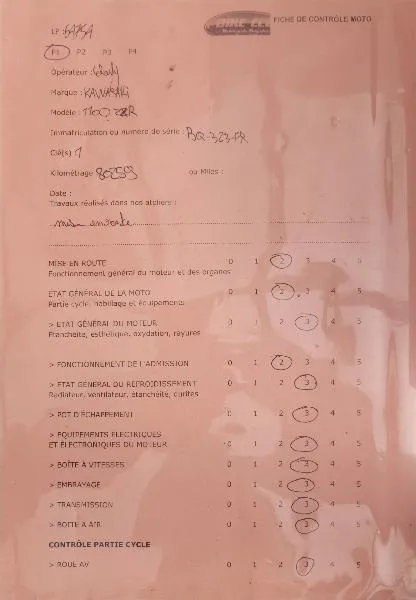 FICHE DE CONTRÔLE MOTO
LP :
P1 P2 P3 P4
Opérateur :
Marque : KAWASAKI
Modèle :
Immatriculation ou numéro de série : BQ-323-FR
Clé(s) 1
Kilométrage 80259 ou Miles :
Date :
Travaux réalisés dans nos ateliers :
MISE EN ROUTE 0 1 2 3 4 5
Fonctionnement général du moteur et des organes
ETAT GÉNÉRAL DE LA MOTO 0 1 2 3 4 5
Partie cycle, habillage et équipements
> ETAT GÉNÉRAL DU MOTEUR 0 1 2 3 4 5
Etanchéité, esthétique, oxydation, rayures
> FONCTIONNEMENT DE L'ADMISSION 0 1 2 3 4 5
> ETAT GÉNÉRAL DU REFROIDISSEMENT 0 1 2 3 4 5
Radiateur, ventilateur, étanchéité, durites
> POT D'ÉCHAPPEMENT 0 1 2 3 4 5
> EQUIPEMENTS ÉLECTRIQUES
ET ÉLECTRONIQUES DU MOTEUR 0 1 2 3 4 5
> BOÎTE À VITESSES 0 1 2 3 4 5
> EMBRAYAGE 0 1 2 3 4 5
> TRANSMISSION 0 1 2 3 4 5
> BOITE A AIR 0 1 2 3 4 5
CONTRÔLE PARTIE CYCLE
> ROUE AV 0 1 2 3 4 5